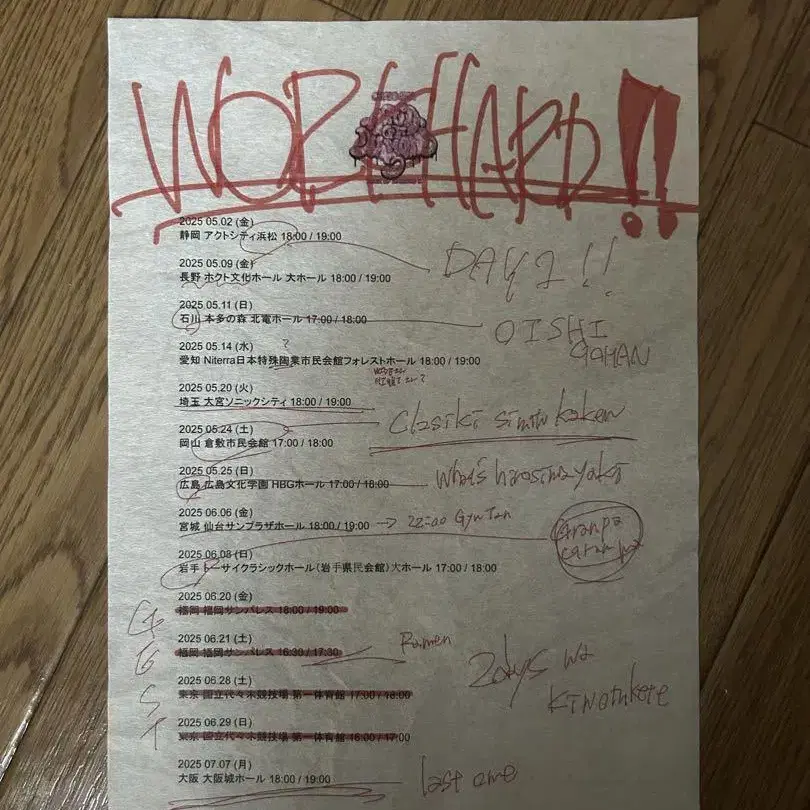 WORK HARD!!
2025 05.02 (金)
静岡 アクトシティ浜松 18:00 / 19:00
2025 05.09 (金)
長野 ホクト文化ホール 大ホール 18:00 / 19:00
DAY 1 !!
2025 05.11 (日)
石川 本多の森 北電ホール 17:00 / 18:00
OISHI
GOHAN
2025 05.14 (水)
愛知 Niterra日本特殊陶業市民会館フォレストホール 18:00 / 19:00
2025 05.20 (火)
埼玉 大宮ソニックシティ 18:00 / 19:00
2025 05.24 (土)
岡山 倉敷市民会館 17:00 / 18:00
2025 05.25 (日)
広島 広島文化学園 HBGホール 17:00 / 18:00
what's hirosima yaki
2025 06.06 (金)
宮城 仙台サンプラザホール 18:00 / 19:00
22:00 Gyu Tan
2025 06.08 (日)
岩手 トーサイクラシックホール(岩手県民会館)大ホール 17:00 / 18:00
2025 06.20 (金)
福岡 福岡サンパレス 18:00 / 19:00
2025 06.21 (土)
福岡 福岡サンパレス 16:30 / 17:30
Ramen
2days wa
Kiwotukete
2025 06.28 (土)
東京 国立代々木競技場 第一体育館 17:00 / 18:00
2025 06.29 (日)
東京 国立代々木競技場 第一体育館 16:00 / 17:00
2025 07.07 (月)
大阪 大阪城ホール 18:00 / 19:00
last one